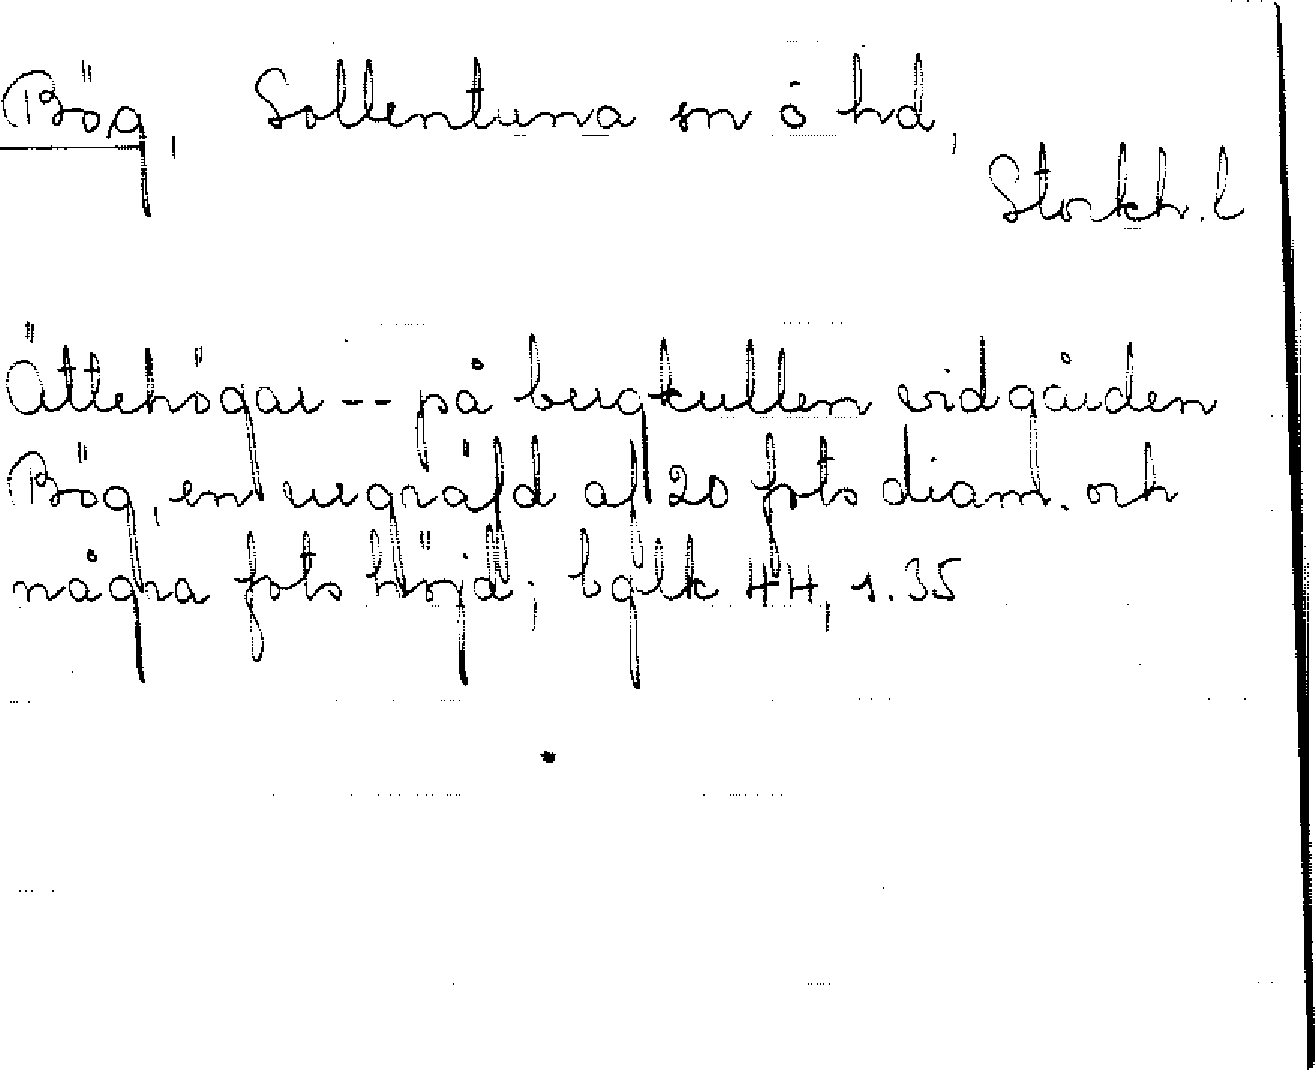 Bög, Sollentuna sn o hd,
Stockh. l
Ättehögar -- på bergkullen vid gården
Bög, en urgräfd af 20 fots diam. och
några fots höjd; bglk 44, s. 35